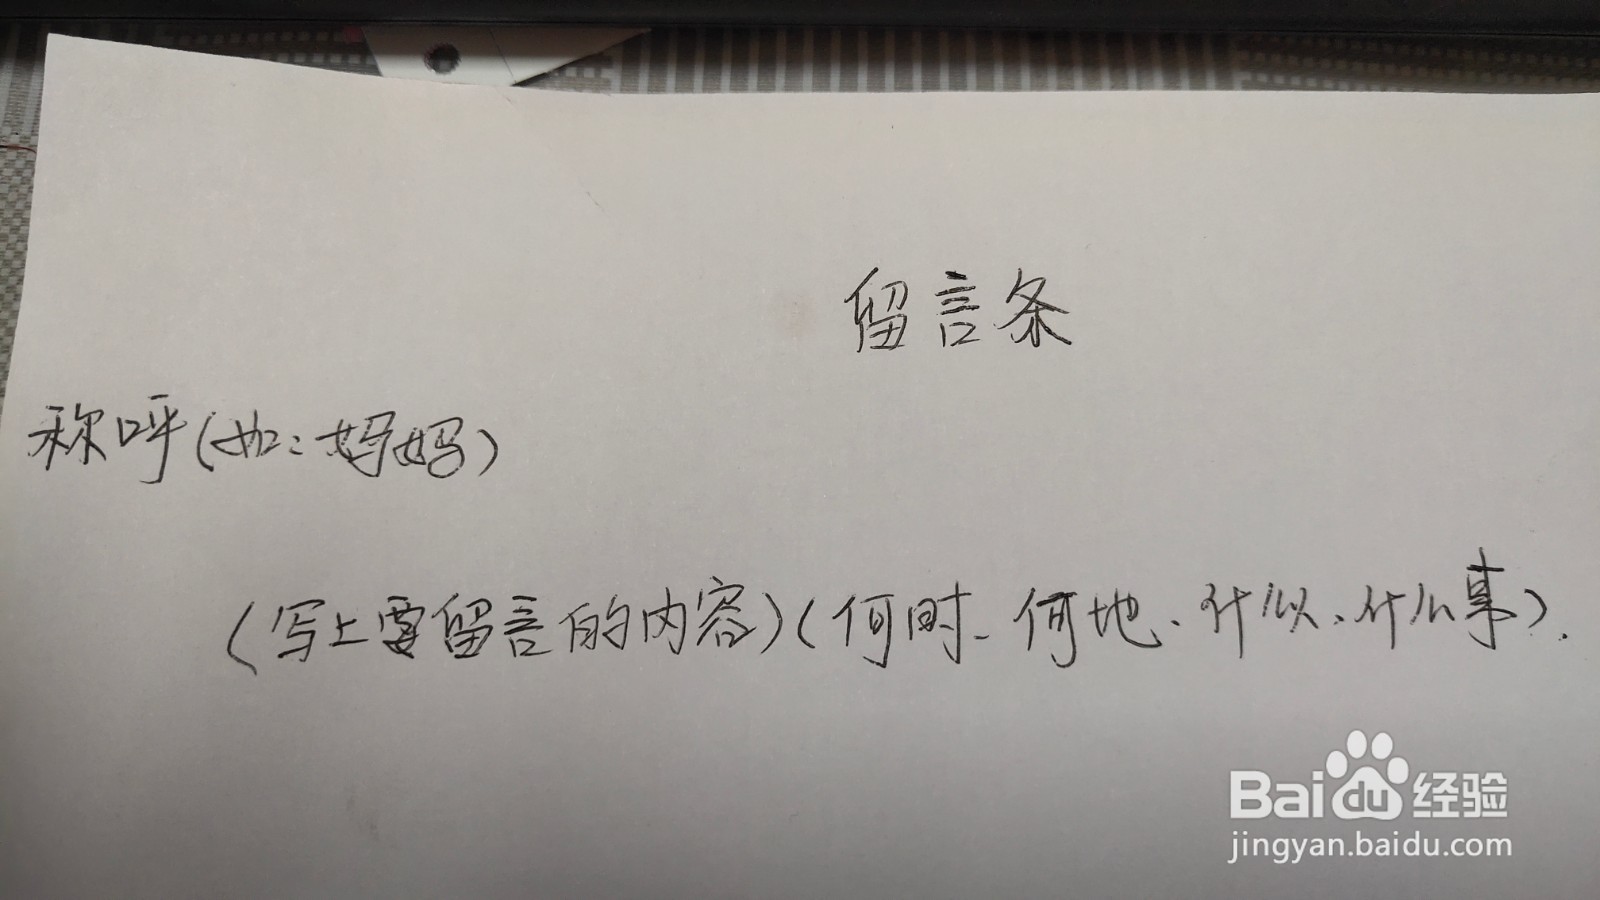 留言条
称呼(如:妈妈)
(写上要留言的内容)(何时、何地、什么、什么事).
Baidu经验
jingyan.baidu.com